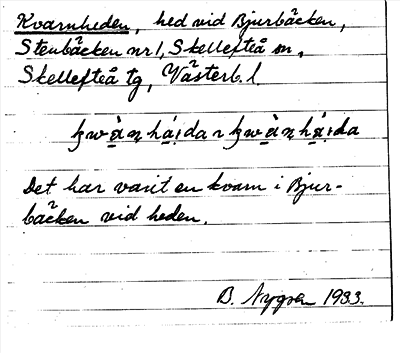 Kvarnheden, hed vid Bjurbäcken,
Stenbäcken nr 1, Skellefteå sn,
Skellefteå tg, Västerb. l.
Det har varit en kvarn i Bjur-
bäcken vid heden.
B. Nygren 1933.